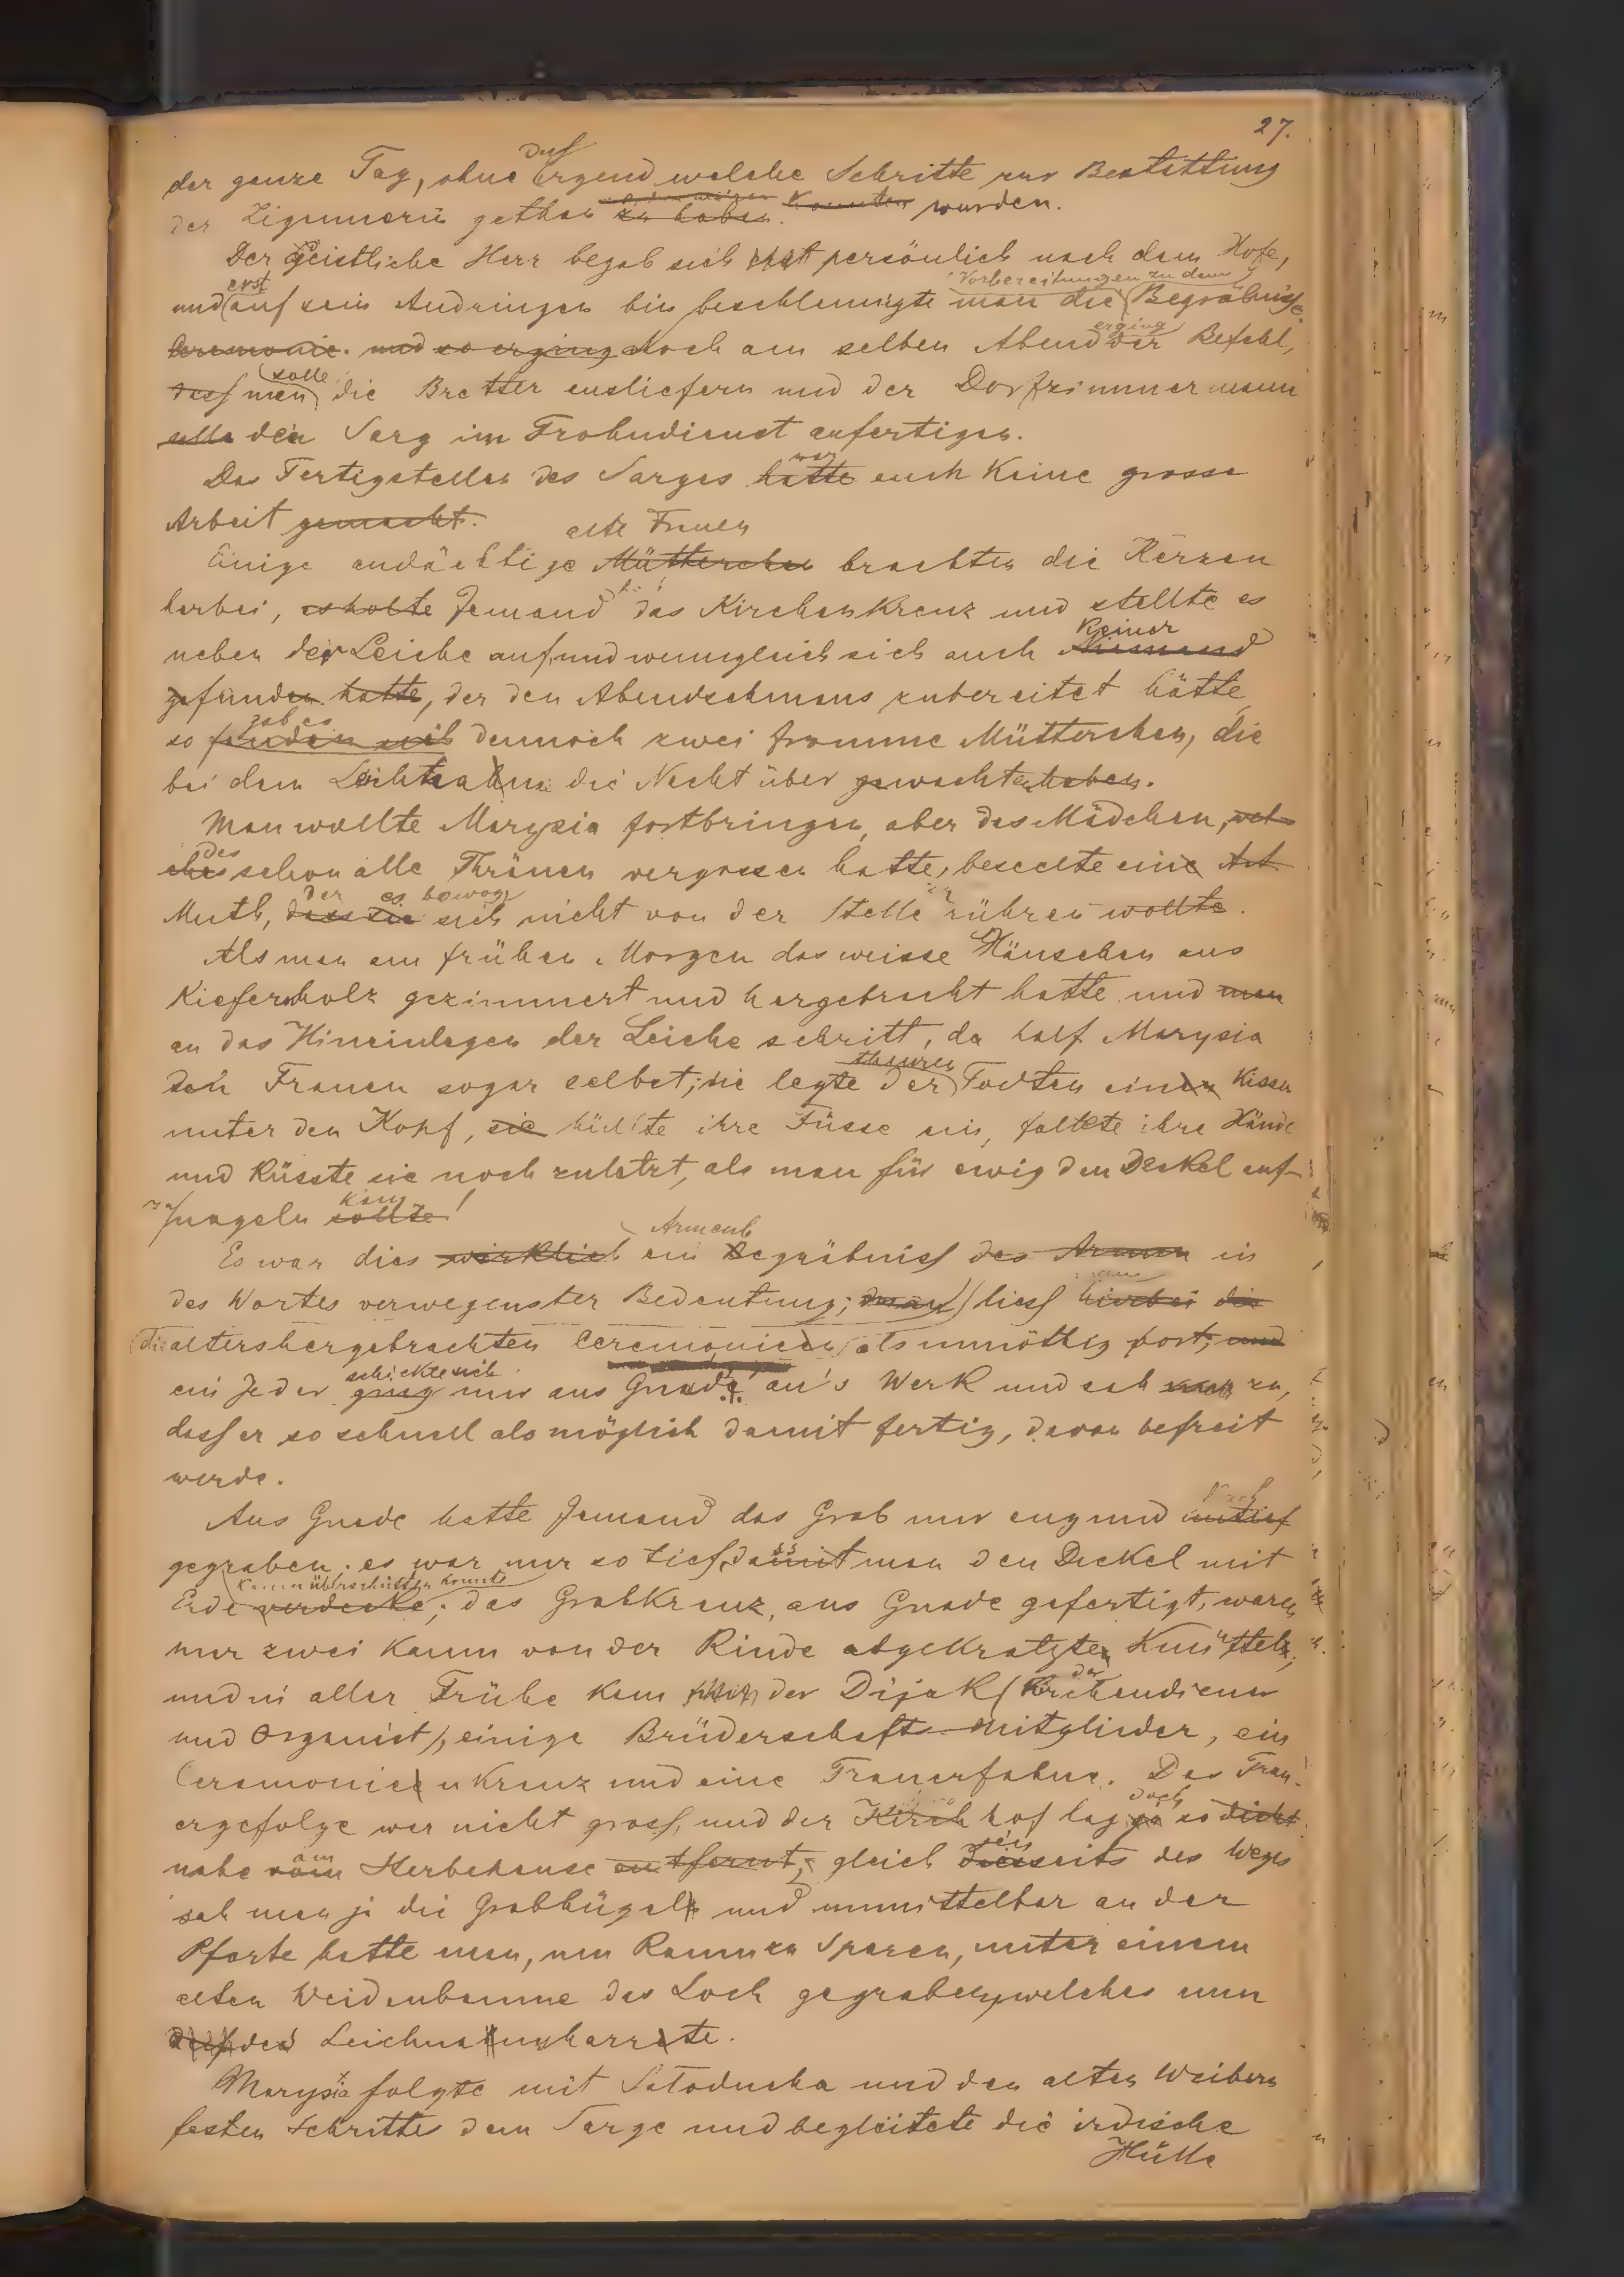 27.
der ganze Tag, ohne dass irgend welche Schritte zur Bestattung
der Zigeunerin gethan zu haben. konnten wurden.
Der Geistliche Herr begab sich persönlich nach dem Hofe,
und erst auf sein Andringen hin beschleunigte man die Vorbereitungen zu dem Begräbniss
ceremonie. und so erging Noch am selben Abend erging der Befehl,
dass man solle die Bretter ausliefern und der Dorfzimmermann
solle den Sarg im Frohndienst anfertigen.
Das Fertigstellen des Sarges hatte war auch keine grosse
Arbeit gemacht.
Einige andächtige Mütterchen alte Frauen brachten die Kerzen
herbei, es holte Jemand das Kirchenkreuz und stellte es
neben der Leiche auf, und wenngleich sich auch Niemand Keiner
gefunden hatte, der den Abendschmaus zubereitet hätte,
so fanden sich gab es dennoch zwei fromme Mütterchen, die
bei dem Leichnam die Nacht über gewacht haben.
Man wollte Marysia fortbringen, aber das Mädchen, wel-
ches das schon alle Thränen vergossen hatte, beseelte eine Art
Muth, dass sie der es bewog sich nicht von der Stelle rühren wollte.
Als man am frühen Morgen das weisse Häuschen aus
Kiefernholz gezimmert und hergebracht hatte und man
an das Hineinlegen der Leiche schritt, da half Marysia
den Frauen sogar selbst; sie legte der theuren Todten einen Kissen
unter den Kopf, sie hüllte ihre Füsse ein, faltete ihre Hände
und küsste sie noch zuletzt, als man für ewig den Deckel auf-
zunageln sollte kam!
Es war dies wirklich ein Armenbegräbniss des Armen in
des Wortes verwegenster Bedeutung; man liess hierbei die
die altershergebrachten Ceremonien als unnöthig fort; und
ein Jeder ging schickte sich nur aus Gnade an's Werk und sah nur zu,
dass er so schnell als möglich damit fertig, davon befreit
werde.
Aus Gnade hatte Jemand das Grab nur eng und untief
gegraben. es war nur so tief, damit man den Deckel mit
Erde verdecke kaum überschütten konnte; das Grabkreuz, aus Gnade gefertigt, waren
nur zwei kaum von der Rinde abgekratzte Knüttel;
und in aller Frühe kam der Dijak (der Kirchendiener
und Organist), einige Brüderschafts-Mitglieder, ein
Ceremonien Kreuz und eine Trauerfahne. Das Trau-
ergefolge war nicht gross, und der Kirchhof lag ja doch so dicht
nahe vom am Sterbehause entfernt, gleich jenseits des Weges
sah man ja die Grabhügel und unmittelbar an der
Pforte hatte man, um Raum zu Sparen, unter einem
alten Weidenbaume das Loch gegraben, welches nun
des Leichnams harrte.
Marysia folgte mit Satoducha und den alten Weibern
festen Schrittes dem Sarge und begleitete die irdische
Hülle